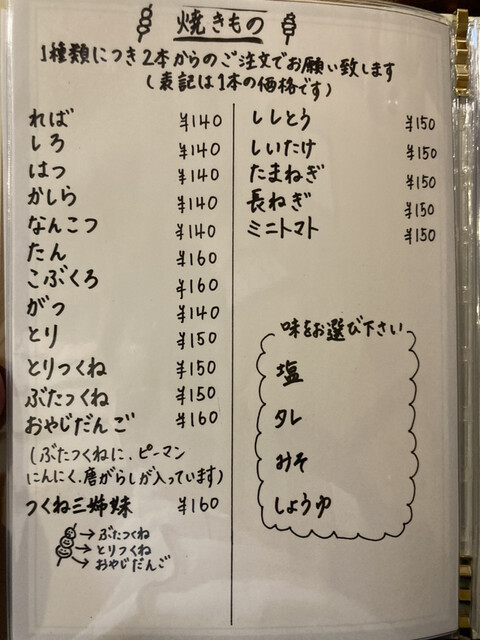 焼きもの
1種類につき2本からのご注文でお願い致します
(表記は1本の価格です)
ればー ¥140
しろ ¥140
はつ ¥140
かしら ¥140
なんこつ ¥140
たん ¥160
こぶくろ ¥160
がつ ¥140
とり ¥150
とりつくね ¥150
ぶたつくね ¥150
おやじだんご ¥160
(ぶたつくねに、ピーマン
にんにく、唐がらしが入っています)
つくね三姉妹 ¥160
→ぶたつくね
→とりつくね
→おやじだんご
ししとう ¥150
しいたけ ¥150
たまねぎ ¥150
長ねぎ ¥150
ミニトマト ¥150
味をお選び下さい
塩
タレ
みそ
しょうゆ